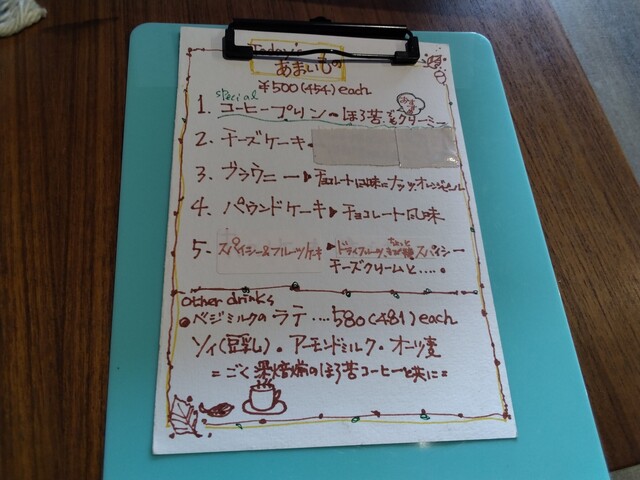 Today's
あまいもの
¥500(454)each
special
1. コーヒープリン〜ほろ苦でもクリーミー
2. チーズケーキ
3. ブラウニー▶チョコレート風味にナッツオレンジピール
4. パウンドケーキ▶チョコレート風味
5. スパイシー&フルーツケーキ▶ドライフルーツ、ちょっとスパイシー
チーズクリームと....。
other drinks
●ベジミルクのラテ....580(481)each
ソイ(豆乳)・アーモンドミルク・オーツ麦
=ごく深焙煎のほろ苦コーヒーと共に=